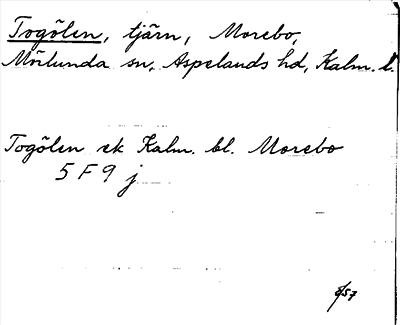 Togölen, tjärn, Morebo,
Mörlunda sn, Aspelands hd, Kalm. l.
Togölen ek Kalm. bl. Morebo
5 F 9 j